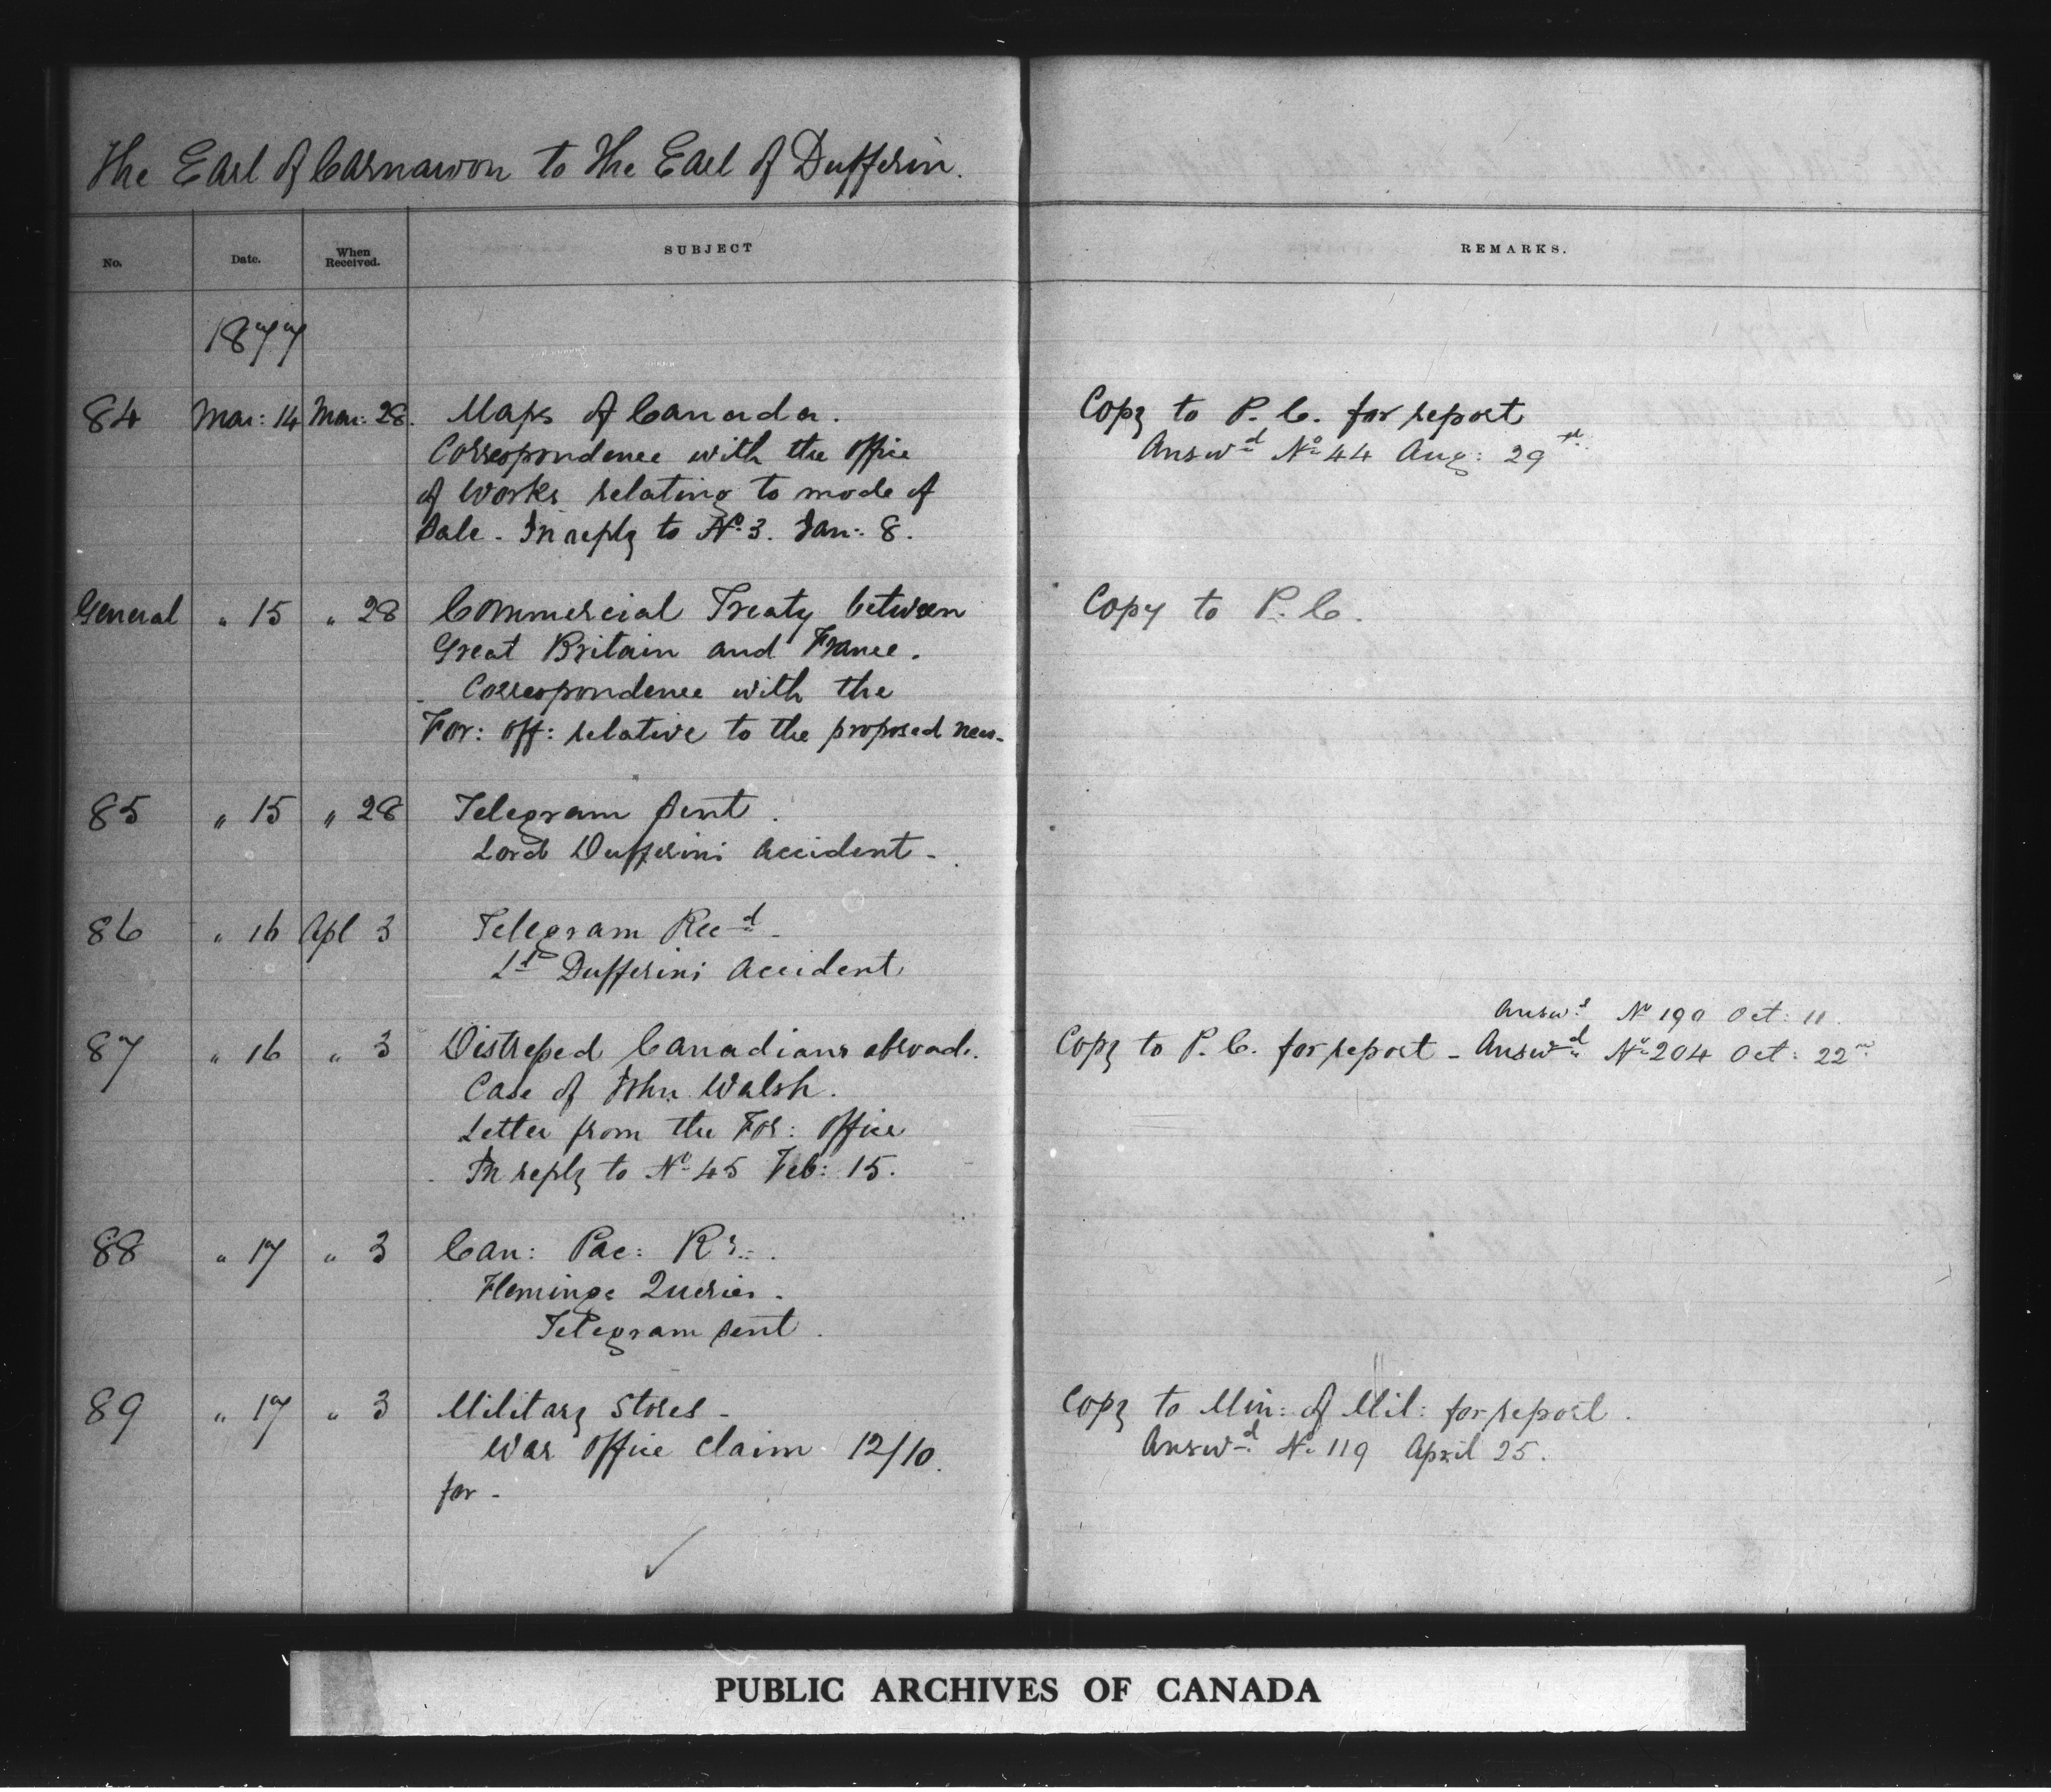 The Earl of Carnarvon to the Earl of Dufferin.
No. Date. When Received. SUBJECT REMARKS.
1877
84 Mar: 14 Mar: 28. Maps of Canada. Copy to P. C. for report
Correspondence with the Office Answd No 44 Aug: 29th
of Works relating to mode of
Sale - In reply to No 3. Jan: 8.
General " 15 " 28 Commercial Treaty between Copy to P. C.
Great Britain and France.
Correspondence with the
For: Off: relative to the proposed new-
85 " 15 " 28 Telegram sent.
Lord Dufferins accident -
86 " 16 Apl 3 Telegram Recd -
Ld Dufferins accident
Answd No 190 Oct: 11
87 " 16 " 3 Distressed Canadians abroad. Copy to P. C. for report - Answd No 204 Oct: 22nd
Case of John Walsh.
Letter from the For: Office
In reply to No 45 Feb: 15.
88 " 17 " 3 Can: Pac: Ry.
Flemings Queries.
Telegram sent.
89 " 17 " 3 Military Stores - Copy to Min: of Mil: for report.
War Office claim 12/10. Answd No 119 April 25.
for -
PUBLIC ARCHIVES OF CANADA